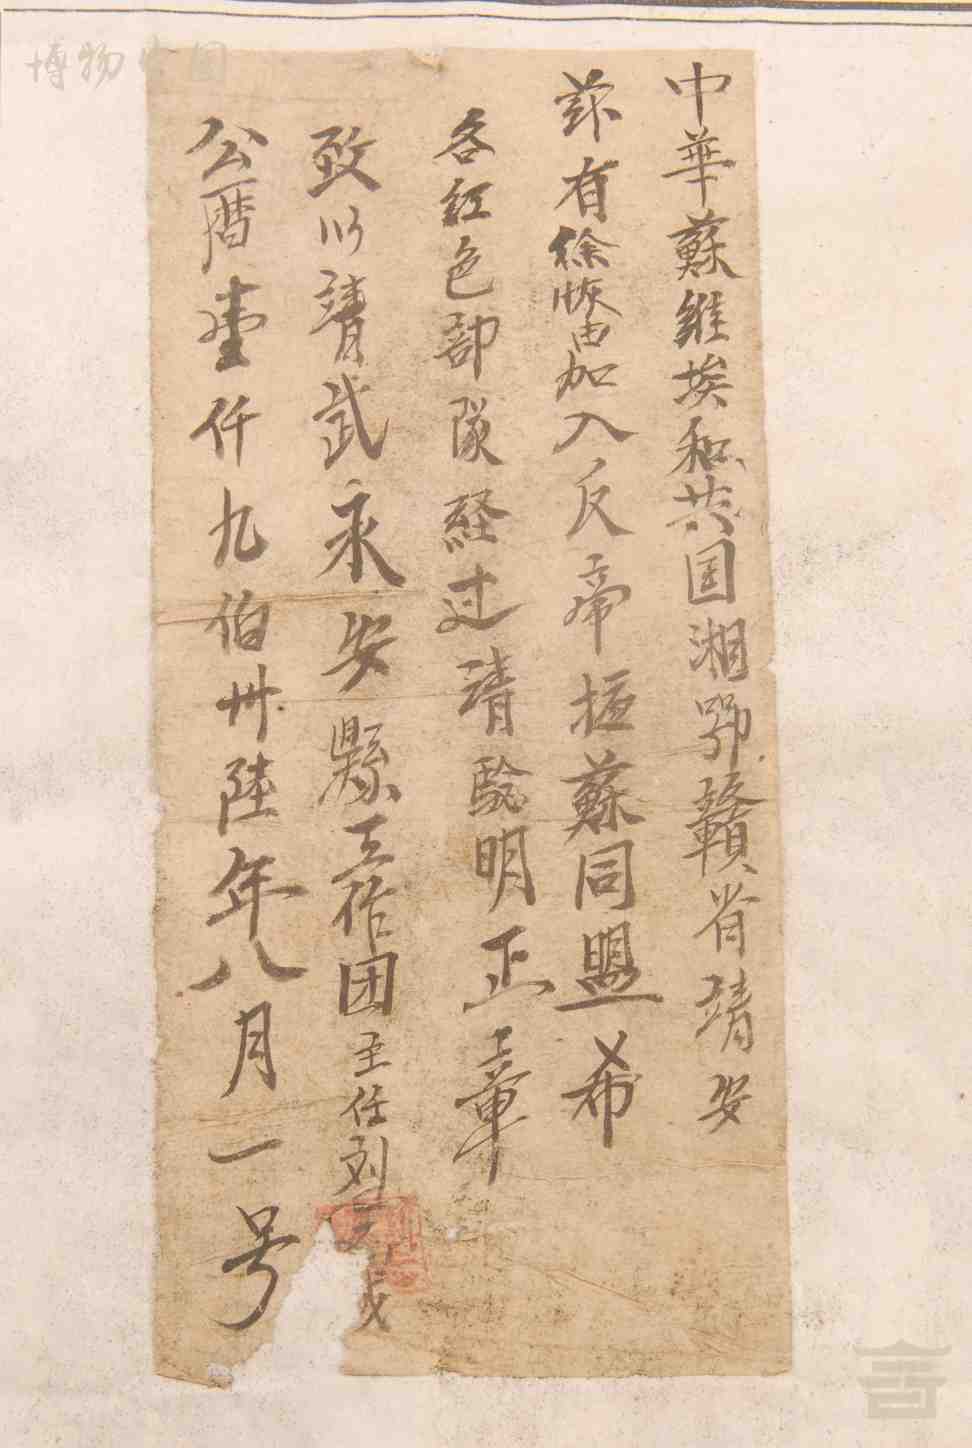 中華蘇維埃和共国湘鄂贛省靖安
茲有徐恢由加入反帝拒蘇同盟希
各红色部隊経过請驗明正章
致以請武永安縣工作团主任刘
公曆壹仟九伯卅陸年八月一号
博物中国